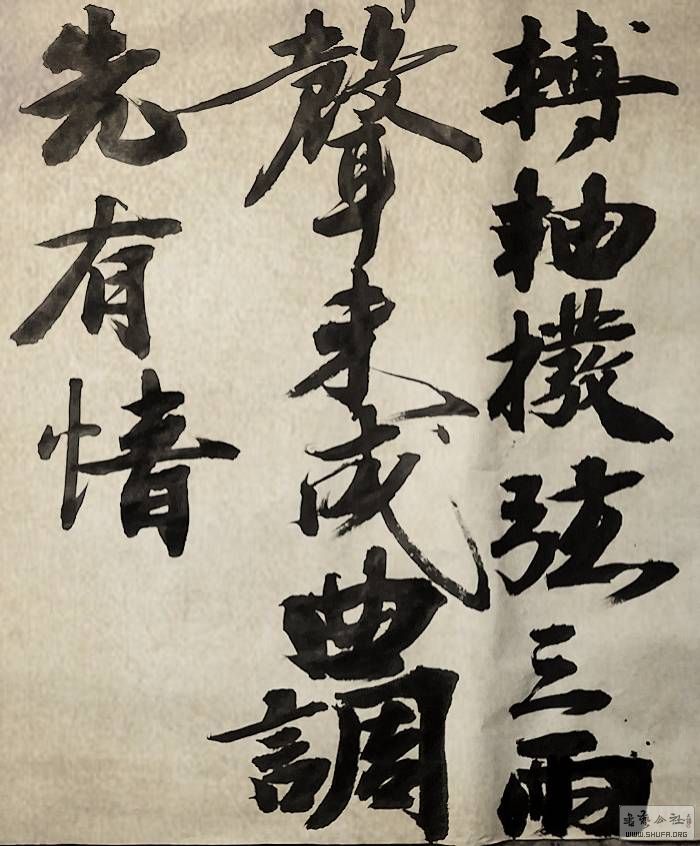 轉軸撥弦三兩
聲未成曲調
先有情
WWW.SHUFA.ORG